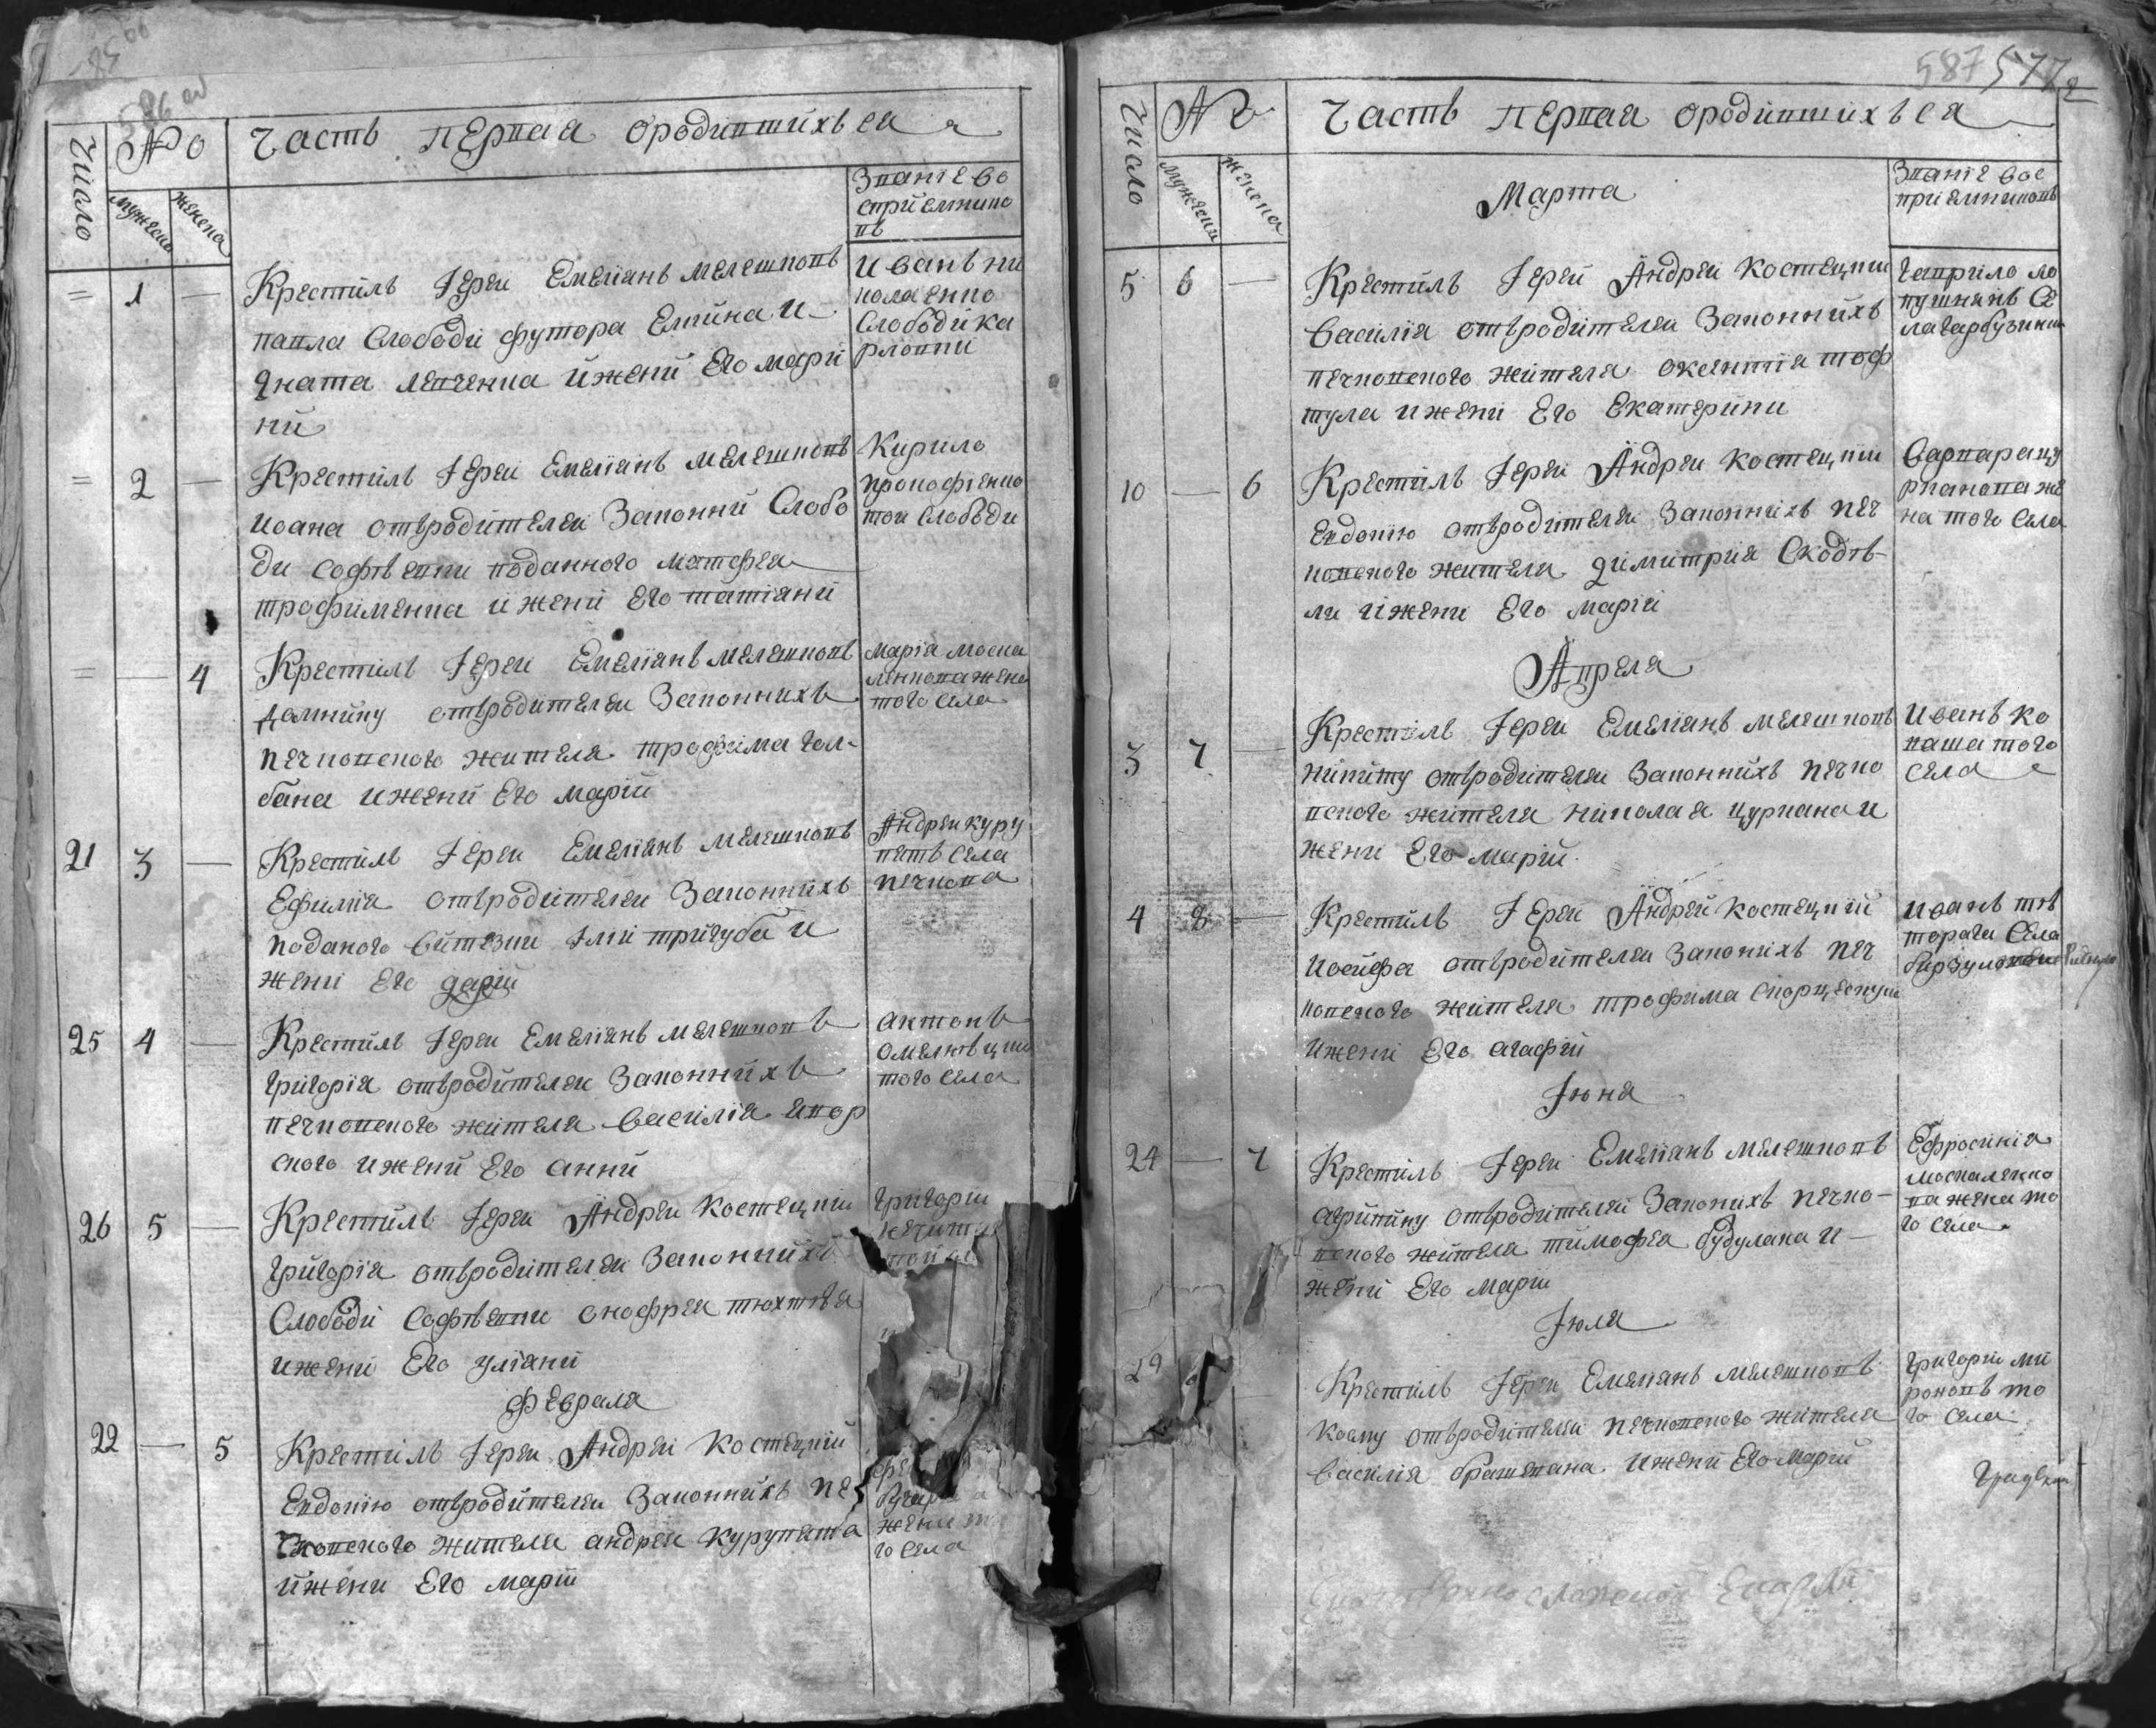 586 об
Число
№о
Часть первая ородившихъся
мужеска
женска
Званiе во
сприемнико
въ
= 1 — Крестилъ Iерей Емелiанъ Мелешковъ
павла Слободи футора Елчина И
Гната левченка и жени Его мари
ни
Иванъ ни
колаенко
Слободи ка
рловки
= 2 — Крестилъ Iерей Емелiанъ Мелешковъ
иоана отъродителей Законни Слобо
ди Софѣевки поданного матфея
трофименка и жени Его татiани
Кирило
прокофiенко
той Слободи
= — 4 Крестилъ Iерей Емелiанъ Мелешковъ
домнику отъродителей Законнихъ
печковского жителя трофима гол-
бана и жени Его марiй
марiа моска
ленкова жена
того села
21 3 — Крестилъ Iерей Емелiанъ Мелешковъ
Ефимiа отъродителей Законнихъ
поданого витязки Iлii тригуба и
женi Его дарiй
Андрей куру
пятъ села
печкова
25 4 — Крестилъ Iерей Емелiанъ Мелешковъ
григорiя отъродителей Законнихъ
печковского жителя василiя явор
ского и жени Его анни
антонъ
омелнѣцки
того села
26 5 — Крестилъ Iерей Андрей Костецкiй
григорiя отъродителей Законнихъ
Слободи Софѣевки онофрея тюхтѣя
и жени Его улiани
григорiй
февраля
22 — 5 Крестилъ Iерей Андрей Костецкiй
Евдокiю отъродителей Законнихъ пе
чковского жителя андрея курупята
и жени Его марiи
жени т
го села
587 577
Число
№
Часть первая ородившихъся
мужеска
женска
Марта
Званiе вос
приемниковъ
5 6 — Крестилъ Iерей Андрей Костецкiй
василiя отъродителей Законнихъ
печковского жителя оксентiя тоф
тула и жени Его Екатерини
гаврило ло
пушнянъ Се
ла гарбузинки
10 — 6 Крестилъ Iерей Андрей Костецкiй
Евдокiю отъродителей Законнихъ печ
ковского жителя димитрiя Скодѣ-
ли и жени Его марiй
варвара цу
рканова же
на того села
Апреля
3 7 — Крестилъ Iерей Емелiанъ Мелешковъ
никиту отъродителей Законнихъ печко
вского жителя николая цуркана и
жени Его марiй
Иванъ ко
ваша того
села
4 8 — Крестилъ Iерей Андрей Костецкiй
иосифа отъродителей Законихъ печ
ковского жителя трофима
и жени Его агафiй
Иванъ
Села
Iюня
24 — 7 Крестилъ Iерей Емелiанъ Мелешковъ
агрипину отъродителей Законихъ печко-
вского жителя тимофея будулака и
жени Его марiи
Ефросинiа
москаленко
ва жена то
го села
Iюля
29 Крестилъ Iерей Емелiанъ Мелешковъ
косму отъродителей печковского жителя
василiя братована и жени Его Марiй
григорiй ми
роновъ то
го села